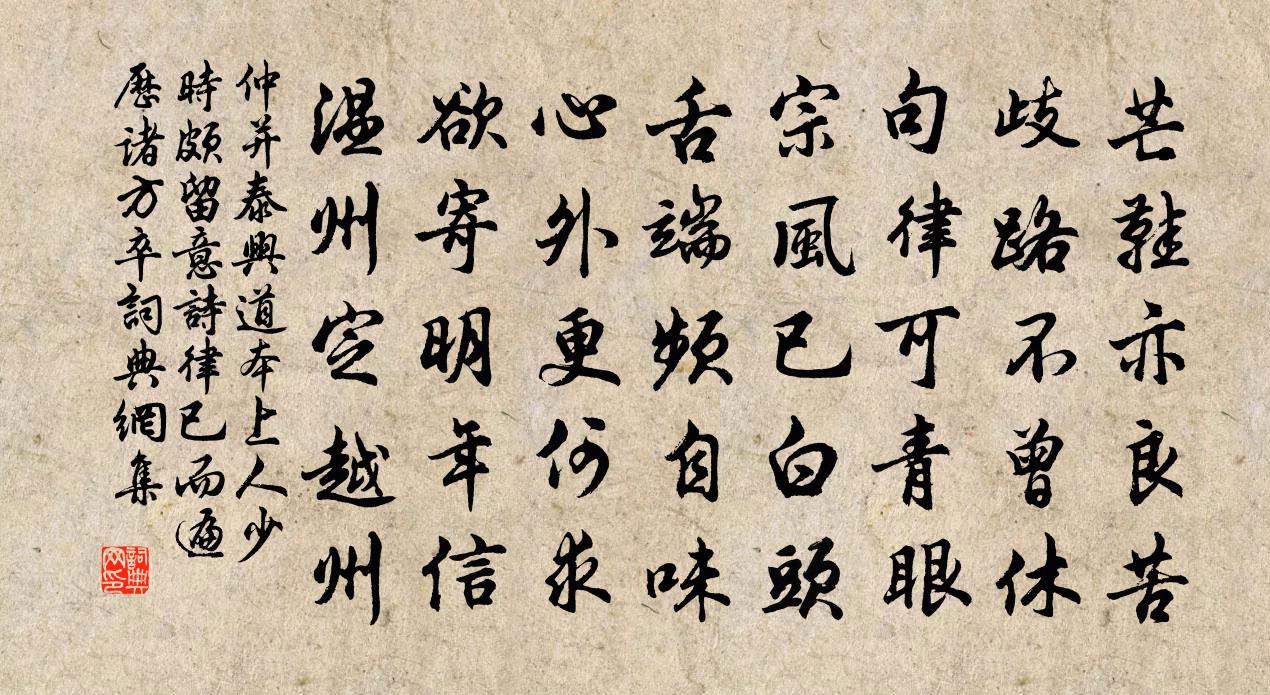 芒鞋亦良苦
歧路不曾休
句律可青眼
宗風已白頭
舌端頻自味
心外更何求
欲寄明年信
溫州定越州
仲并泰興道本上人少
時頗留意詩律已而遍
歷諸方卒詞典網集
詞典網印